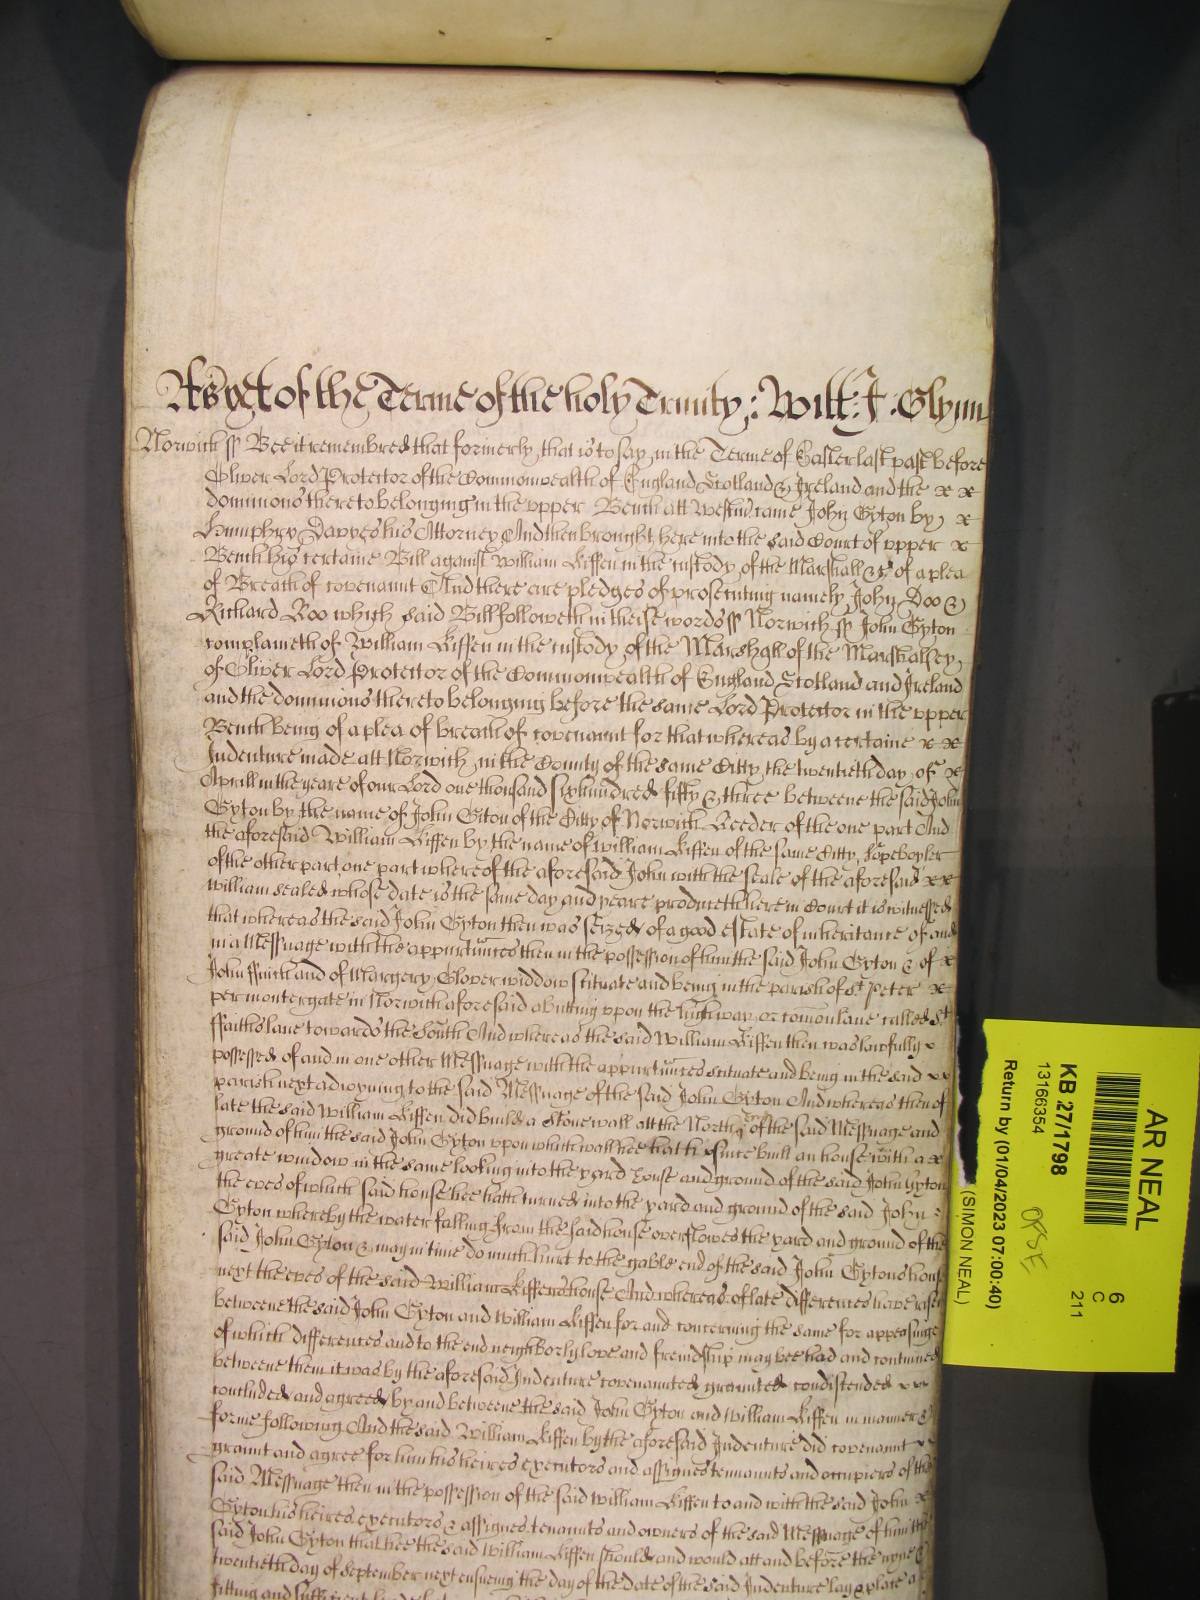 As yet of the Terme of the holy Trinity : Will: J. Glynn
Norwich ss Bee it remembred that formerly that is to say in the Terme of Easter last past before
Oliver Lord Protector of the Commonwealth of England Scotland & Ireland and the x x
dominions thereto belonging in the upper Bench att Westmr came John Gyton by x
Humphry Dawyes his Attorney And then brought here into the said Court of upper x
Bench his certaine Bill against William Kiffen in the custody of the Marshall &c of a plea
of Breach of covenannt And there are pledges of prosecuting namely John Doo &
Richard Roo which said Bill followeth in theise words ss Norwich ss John Gyton
complaineth of William Kiffen in the custody of the Marshall of the Marshalsey
of Oliver Lord Protector of the Commonwealth of England Scotland and Ireland
and the dominions thereto belonging before the same Lord Protector in the upper
Bench being of a plea of breach of covenannt for that whereas by a certaine x x
Indenture made att Norwich in the County of the same Citty the twentieth day of x
Aprill in the yeare of our Lord one thousand six hundred fifty & three betweene the said John
Gyton by the name of John Giton of the Citty of Norwich Reeder of the one part And
the aforesaid William Kiffen by the name of William Kiffen of the same Citty Sopeboyler
of the other part one part whereof the aforesaid John with the seale of the aforesaid x x
William sealed whose date is the same day and yeare produceth here in Court it is witnessed
that whereas the said John Gyton then was seized of a good estate of inheritance of and
in a Messuage with the appurtunces then in the possession of him the said John Gyton & of x
John ffirith and of Margery Glover widdow scituate and being in the parish of St Peter x
permontergate in Norwich aforesaid abutting upon the highway or comon lane called St
ffaithslane towards the South And whereas the said William Kiffen then was lawfully
possessed of and in one other Messuage with the appurtunces scituate and being in the said x x
parish next adioyning to the said Messuage of the said John Gyton And whereas then of
late the said William Kiffen did build a Stone wall att the North of the said Messuage and
ground of him the said John Gyton upon which wall hee hath since built an house with a x
greate window in the same looking into the yard house and ground of the said John Gyton
the eves of which said house hee hath turned into the yard and ground of the said John
Gyton whereby the water falling from the said house overflowes the yard and ground of the
said John Gyton & may in time do much hurt to the gable end of the said John Gytons house
next the eves of the said William Kiffens house And whereas of late differences have risen
betweene the said John Gyton and William Kiffen for and concerning the same for appeasinge
of which differences and to the end neighborly love and freindship may bee had and continued
betweene them it was by the aforesaid Indenture covenannted graunted condistended
concluded and agreed by and betweene the said John Gyton and William Kiffen in manner &
forme following And the said William Kiffen by the aforesaid Indenture did covenannt
graunt and agree for him his heires executors and assignes tennannts and occupiers of the
said Messuage then in the possession of the said William Kiffen to and with the said John x
Gyton his heires executors & assignes tenannts and owners of the said Messuage of him the
said John Gyton that hee the said William Kiffen should and would att and before the nyne &
twentieth day of September next ensueing the day of the date of the said Indenture lay & place a
fitting and sufficient
AR NEAL
KB 27/1798
13166354
Return by (01/04/2023 07:00:40)
(SIMON NEAL)
6
C
211